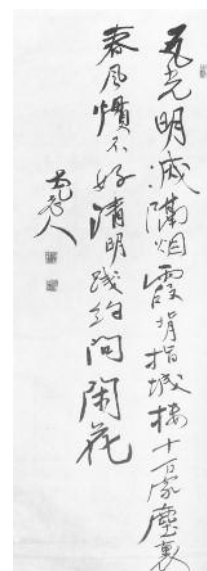 瓦光明滅隔烟霞指城楼十万家塵裏
春風慣不好清明踐約問閑花
老人